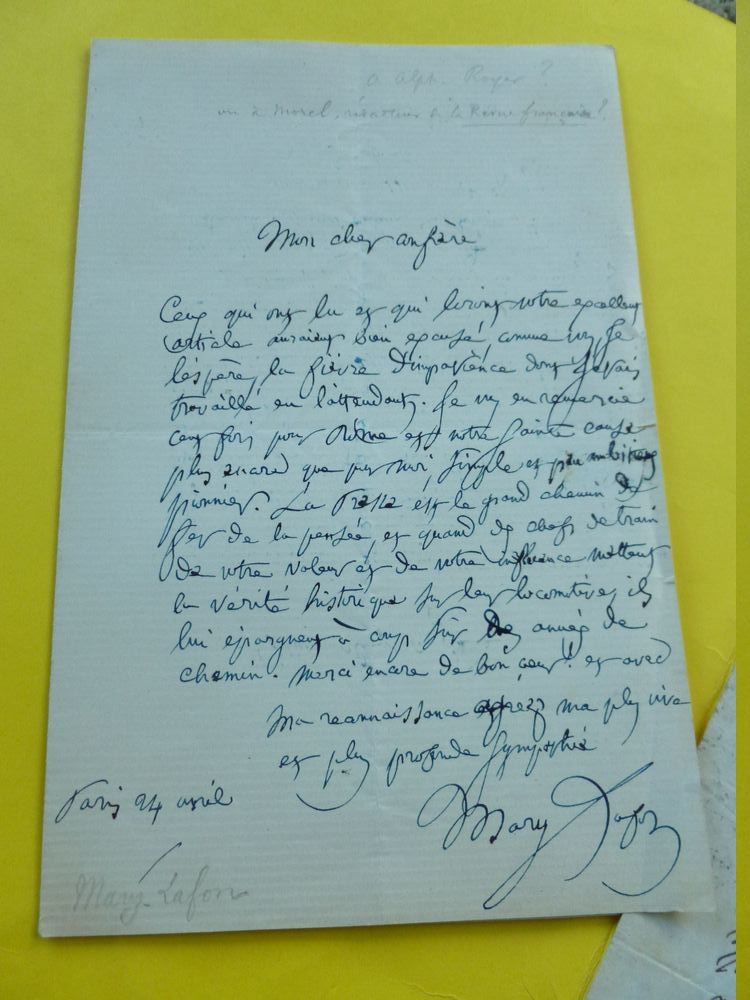 a Alph. Royer ?
ou à Morel, rédacteur à la Revue française ?
Mon cher confrère
Ceux qui ont lu et qui liront votre excellent
article auraient bien excusé, comme vous, je
l'espère, la fièvre d'impatience dont j'étais
travaillé en l'attendant. Je vous en remercie
cent fois pour Rome et notre sainte cause
plus encore que pour moi, simple et peu ambitieux
pionnier. La Presse est le grand chemin de
fer de la pensée, et quand des chefs de train
de votre valeur et de votre influence mettent
la vérité historique sur leur locomotive, ils
lui épargnent à coup sûr des années de
chemin. Merci encore de bon cœur ! et avec
ma reconnaissance agréez ma plus vive
et plus profonde sympathie
Paris 24 avril
Mary Lafon
Mary-Lafon